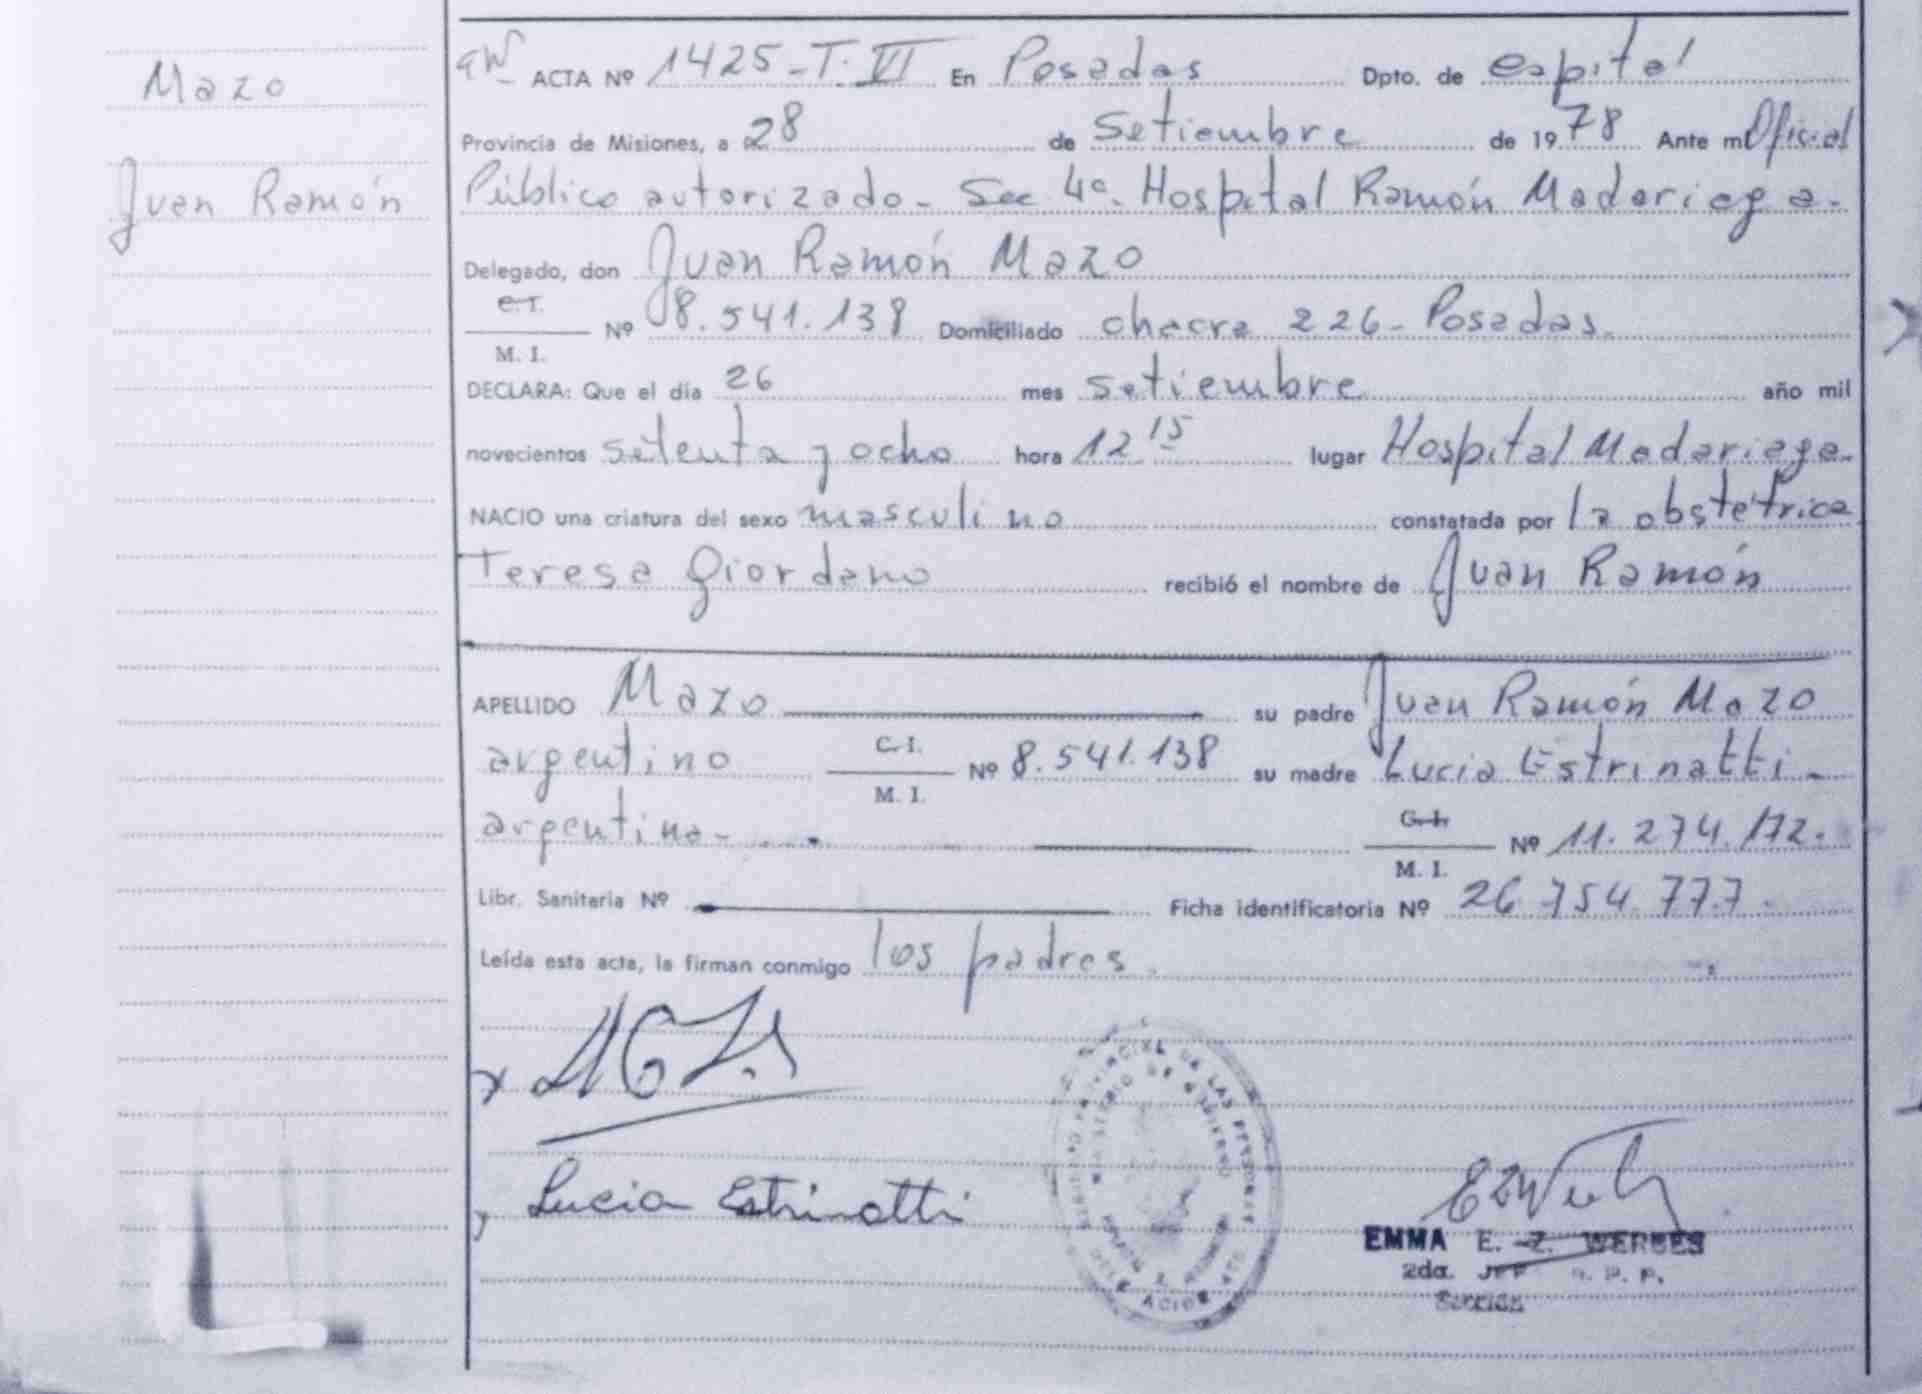 Mazo
Juan Ramón
ACTA Nº 1425-T. VI En Posadas Dpto. de capital
Provincia de Misiones, a 28 de Setiembre de 1978 Ante mí Oficial
Público autorizado - Sec 4a. Hospital Ramón Madariaga.-
Delegado, don Juan Ramón Mazo
C. I.
M. I. Nº 8.541.138 Domiciliado chacra 226 - Posadas.
DECLARA: Que el día 26 mes setiembre año mil
novecientos setenta y ocho hora 12 15 lugar Hospital Madariaga.
NACIO una criatura del sexo masculino constatada por la obstétrica
Teresa Giordano recibió el nombre de Juan Ramón
APELLIDO Mazo su padre Juan Ramón Mazo
argentino C. I. M. I. Nº 8.541.138 su madre Lucia Estrinatti -
argentina - C. I. M. I. Nº 11.274.172.
Libr. Sanitaria Nº Ficha identificatoria Nº 26.754.777.
Leída esta acta, la firman conmigo los padres.
Lucia Estrinatti
EMMA E. Z.
2da. JEF
Sección